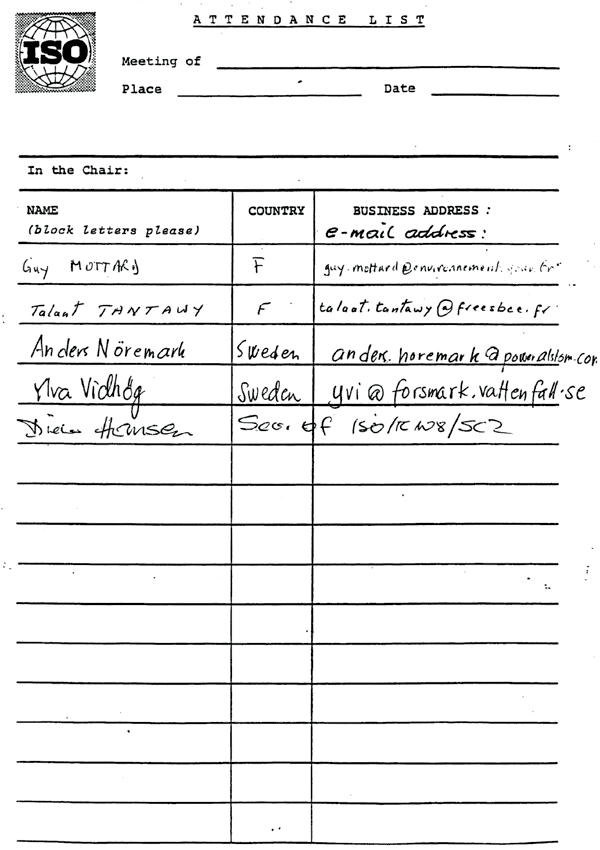 ATTENDANCE LIST
ISO
Meeting of
Place Date
In the Chair:
NAME COUNTRY BUSINESS ADDRESS :
(block letters please) e-mail address:
Guy MOTTARD F guy.mottard@environnement.gouv.fr
Talaat TANTAWY F talaat.tantawy@freesbee.fr
Anders Nöremark Sweden anders.noremark@power.alstom.com
Ylva Vidhög Sweden yvi@forsmark.vattenfall.se
Hansen Sec. of ISO/TC 108/SC2